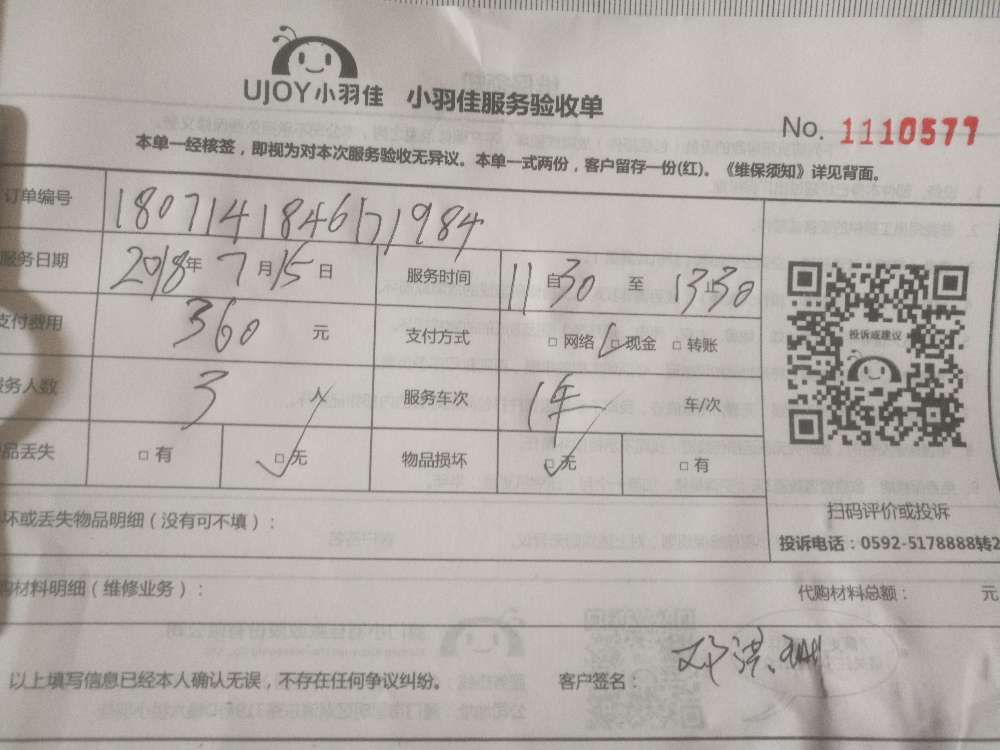 UJOY小羽佳 小羽佳服务验收单
No. 1110577
本单一经核签，即视为对本次服务验收无异议。本单一式两份，客户留存一份(红)。《维保须知》详见背面。
订单编号 180714184617984
服务日期 2018年 7月15日 服务时间 11自30 至 13止30
支付费用 360 元 支付方式 □ 网络 □ 现金 □ 转账
服务人数 3 服务车次 1车 车/次
品丢失 □ 有 □ 无 物品损坏 □ 无 □ 有
投诉或建议
扫码评价或投诉
投诉电话：0592-5178888转2
坏或丢失物品明细（没有可不填）：
购材料明细（维修业务）： 代购材料总额： 元
以上填写信息已经本人确认无误，不存在任何争议纠纷。 客户签名：